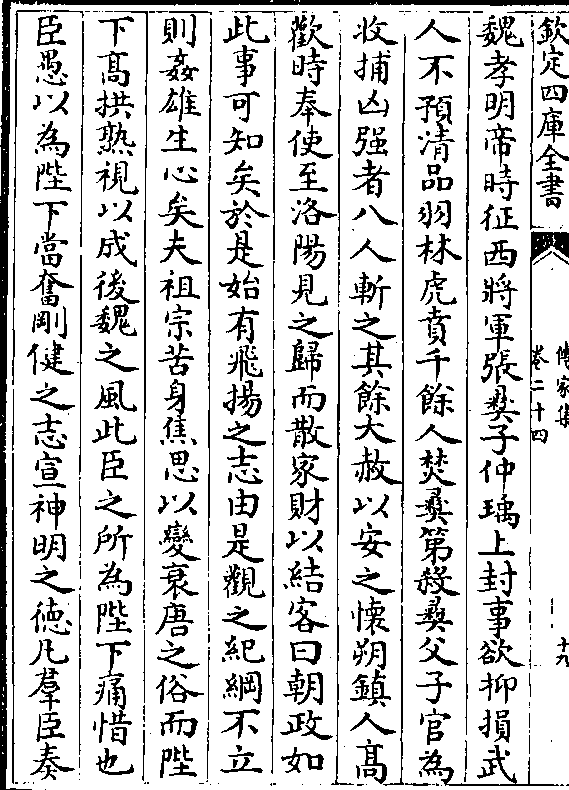 欽定四庫全書
傳家集
卷二十四
十九
魏孝明帝時征西將軍張彛子仲瑀上封事欲抑損武
人不預清品羽林虎賁千餘人焚彛第殺彛父子官為
收捕凶强者八人斬之其餘大赦以安之懷朔鎮人髙
歡時奉使至洛陽見之歸而散家財以結客曰朝政如
此事可知矣於是始有飛揚之志由是觀之紀綱不立
則姦雄生心矣夫祖宗苦身焦思以變衰唐之俗而陛
下髙拱熟視以成後魏之風此臣之所為陛下痛惜也
臣愚以為陛下當奮剛健之志宣神明之徳凡羣臣奏